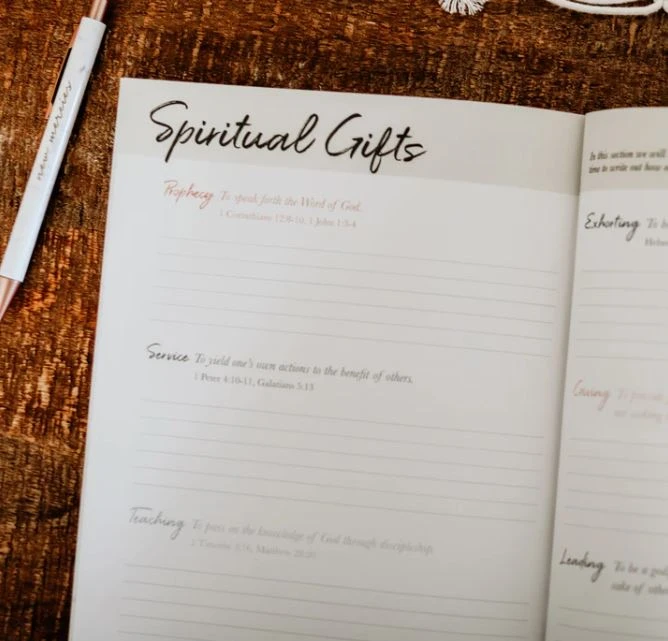 new mercies
Spiritual Gifts
Prophecy To speak forth the Word of God.
1 Corinthians 12:8-10, 1 John 1:3-4
Service To yield one's own actions to the benefit of others.
1 Peter 4:10-11, Galatians 5:13
Teaching To pass on the knowledge of God through discipleship.
In this section we will
time to write out how
Exhorting To
Giving To
Leading To be a
sake of